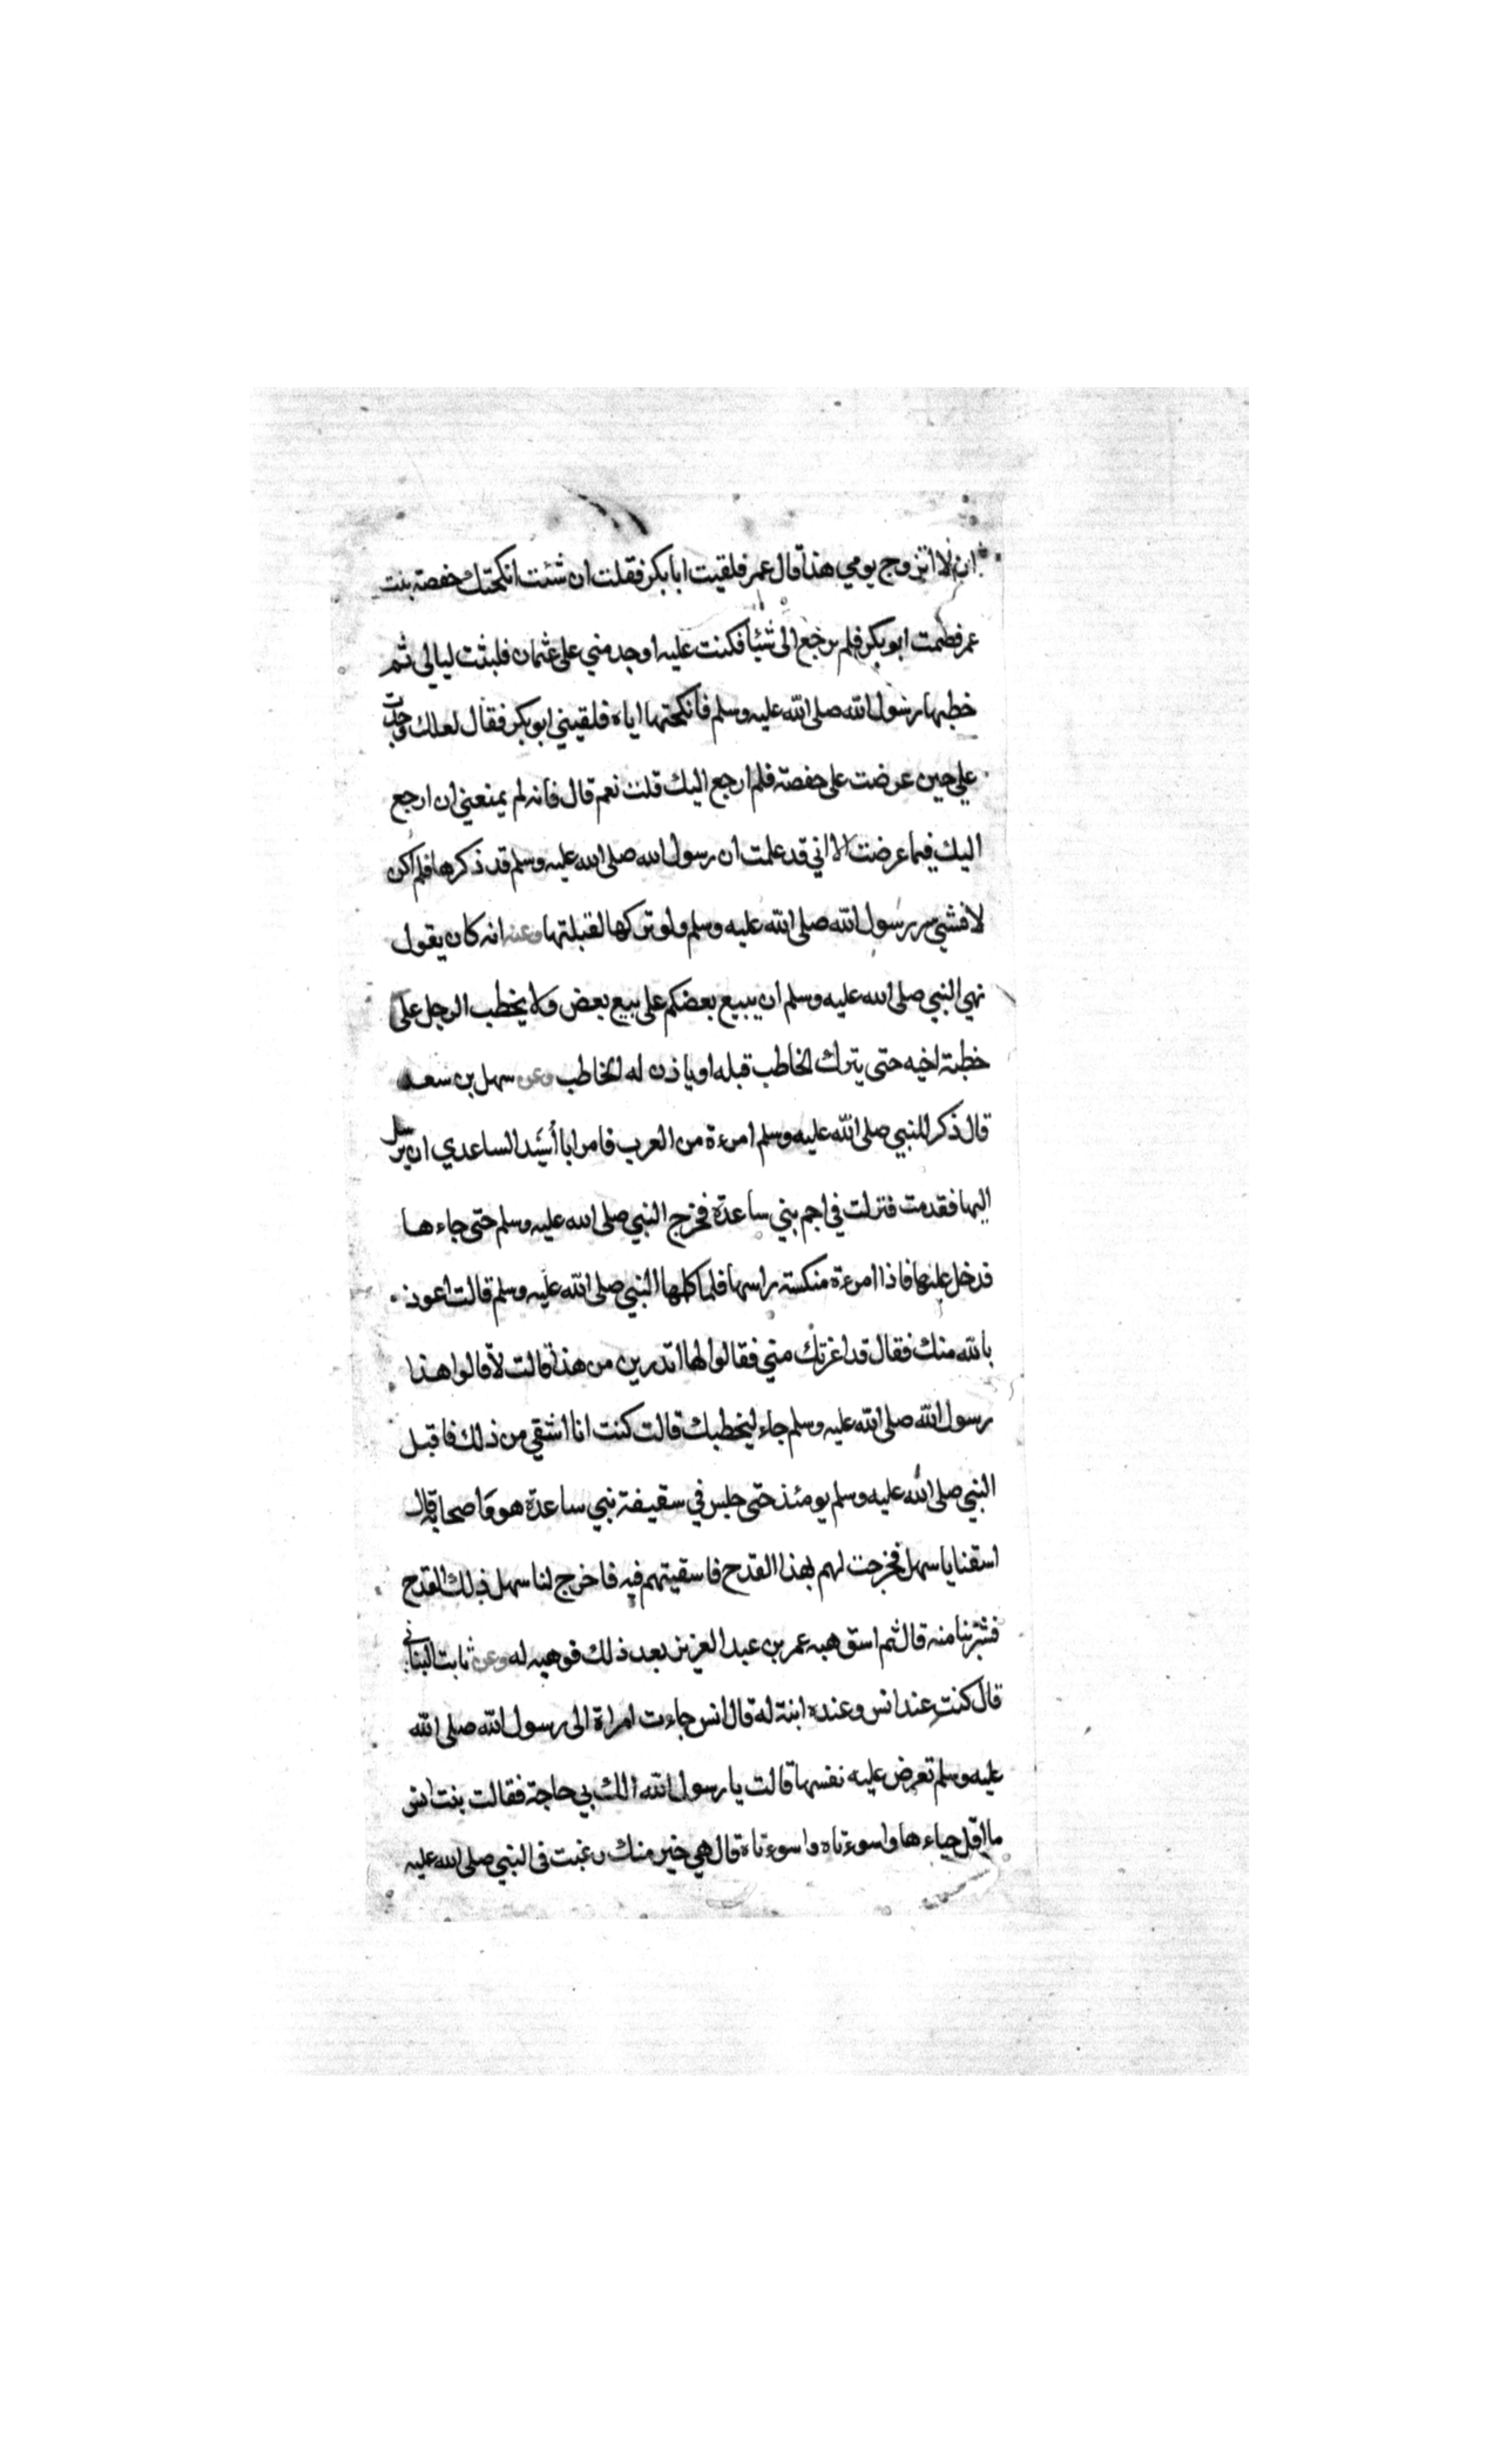 ان لا اتزوج يومي هذا قال عمر فلقيت ابا بكر فقلت ان شئت انكحتك حفصة بنت
عمر فصمت ابو بكر فلم يرجع الى شيئا فكنت عليه اوجد مني على عثمان فلبثت ليالي ثم
خطبها رسول الله صلى الله عليه وسلم فانكحتها اياه فلقيني ابو بكر فقال لعلك وجدت
علي حين عرضت على حفصة فلم ارجع اليك قلت نعم قال فانه لم يمنعني ان ارجع
اليك فيما عرضت الا اني قد علمت ان رسول الله صلى الله عليه وسلم قد ذكرها فلم اكن
لافشي سر رسول الله صلى الله عليه وسلم ولو تركها لقبلتها وعنه انه كان يقول
نهي النبي صلى الله عليه وسلم ان يبيع بعضكم على بيع بعض ولا يخطب الرجل على
خطبة اخيه حتى يترك الخاطب قبله او ياذن له الخاطب وعن سهل بن سعد
قال ذكر للنبي صلى الله عليه وسلم امرءة من العرب فامر ابا أسيد الساعدي ان يرسل
اليها فقدمت فنزلت في اجم بني ساعدة فخرج النبي صلى الله عليه وسلم حتى جاءها
فدخل عليها فاذا امرءة منكسة راسها فلما كلمها النبي صلى الله عليه وسلم قالت اعوذ
بالله منك فقال قد اعذتك مني فقالوا لها اتدرين من هذا قالت لا قالوا هذا
رسول الله صلى الله عليه وسلم جاء ليخطبك قالت كنت انا اشقي من ذلك فاقبل
النبي صلى الله عليه وسلم يومئذ حتى جلس في سقيفة بني ساعدة هو واصحابه قال
اسقنا يا سهل فخرجت لهم بهذا القدح فاسقيتهم فيه فاخرج لنا سهل ذلك القدح
فشربنا منه قال ثم استوهبه عمر بن عبد العزيز بعد ذلك فوهبه له وعن ثابت البناني
قال كنت عند انس وعنده ابنة له قال انس جاءت امراة الى رسول الله صلى الله
عليه وسلم تعرض عليه نفسها قالت يا رسول الله الك بي حاجة فقالت بنت انس
ما اقل حياءها واسوءتاه واسوءتاه قال هي خير منك رغبت في النبي صلى الله عليه